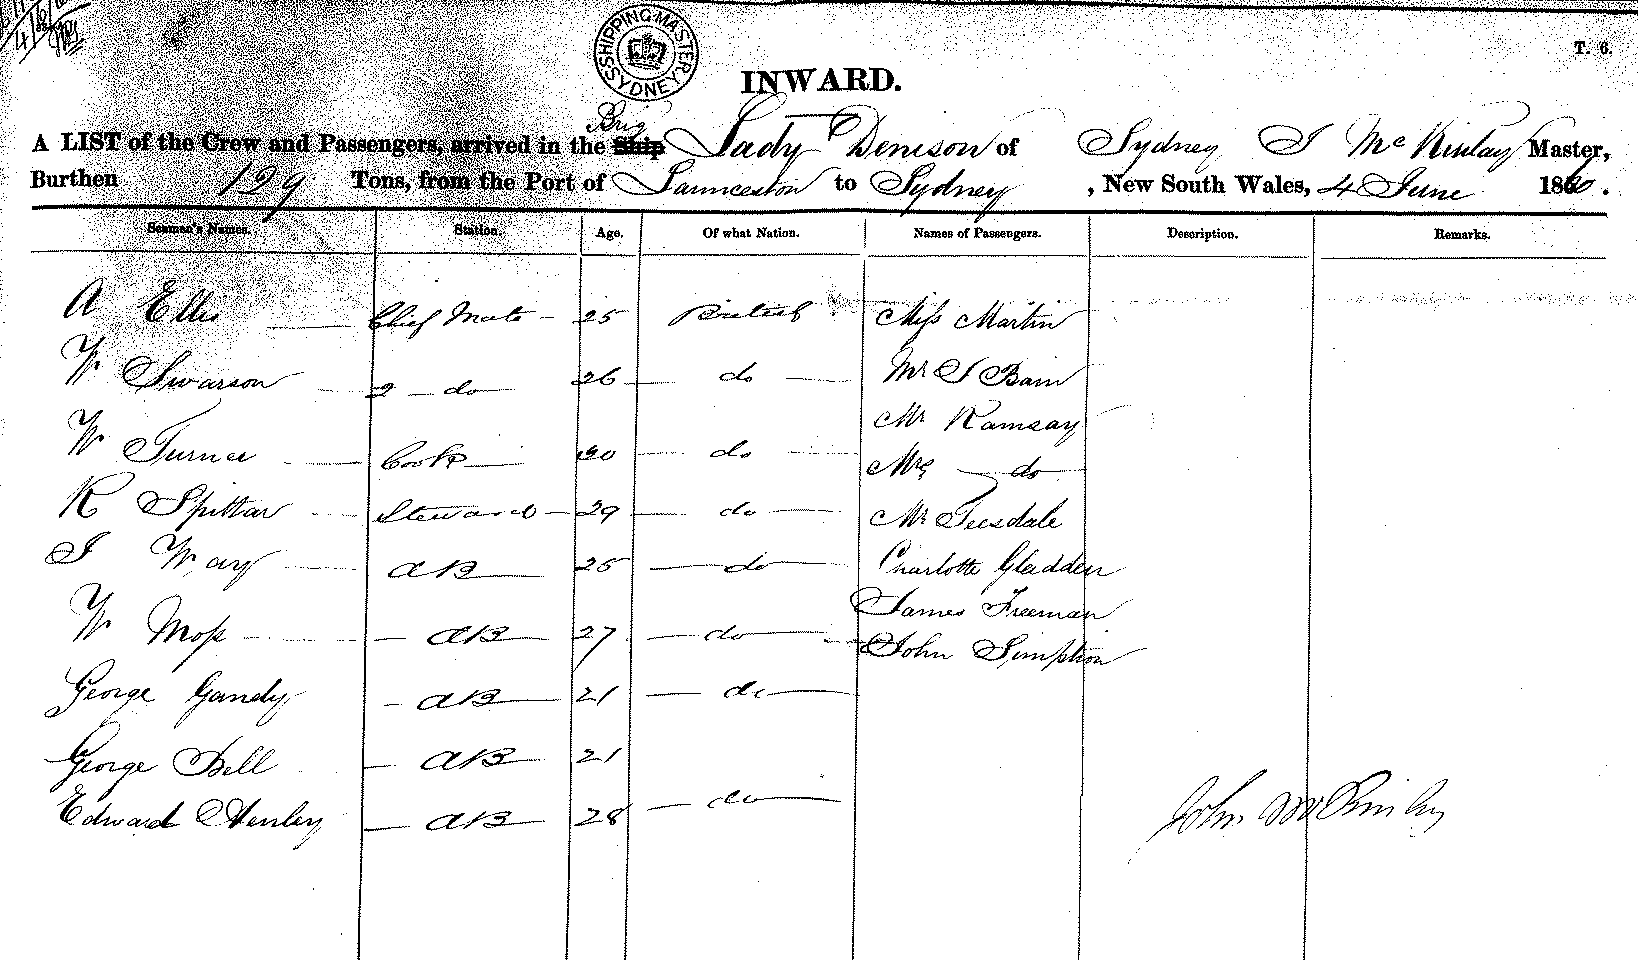 4/6/60
SHIPPING MASTER SYDNEY
T. 6.
INWARD.
Brig
A LIST of the Crew and Passengers, arrived in the Ship Lady Denison of Sydney J McKinlay Master,
Burthen 129 Tons, from the Port of Launceston to Sydney , New South Wales, 4 June 1860.
Seamen's Names. Station. Age. Of what Nation. Names of Passengers. Description. Remarks.
A Ellis Chief Mate 25 British Miss Martin
W Swanson 2 do 26 do Mr J Bain
Mr Ramsay
W Turner Cook do Mrs do
R Spittar Steward 29 do Mr Teesdale
J Way AB 25 do Charlotte Gladden
James Freeman
W Moss AB 27 do John Simption
George Gandy AB 21 do
George Bell AB 21
Edward Henley AB 28 do
John McKinlay